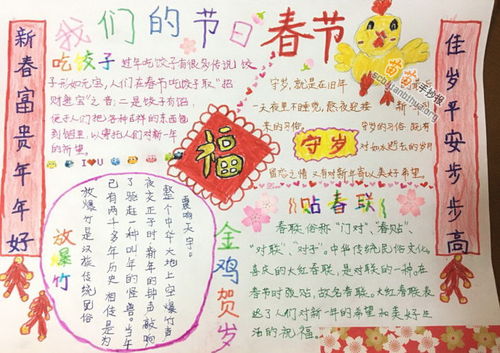 我们的节日
春节
新春富贵年年好
佳岁平安步步高
吃饺子
过年吃饺子有很多传说 饺
子形如元宝,人们在春节吃饺子取"招
财进宝"之音;二是饺子有馅,
便于人们把
到馅里,以寄托人们对新一年
的祈望。
I ♥ U
守岁,就是在旧年
一天夜里不睡觉,熬夜迎接 新
来的习俗, 守岁的习俗,既有
对如水逝去的岁月
留恋之情 又有对新年寄以美好希望。
守岁
福
苗苗手抄报
放爆竹
放爆竹是汉族传统民俗
已有两千多年历史 相传是为
了驱赶一种叫年的怪兽。当年
夜交正子时 新年的钟声敲响
整个中华大地上空 爆竹声
震响天宇。
金鸡贺岁
贴春联
春联俗称"门对"、"春贴"、
"对联"、"对子"。中华传统民俗文化,
喜庆的大红春联,是对联的一种。在
春节时张贴,故名春联。大红春联表
达了人们对新一年的希望和美好生
活的祝福。